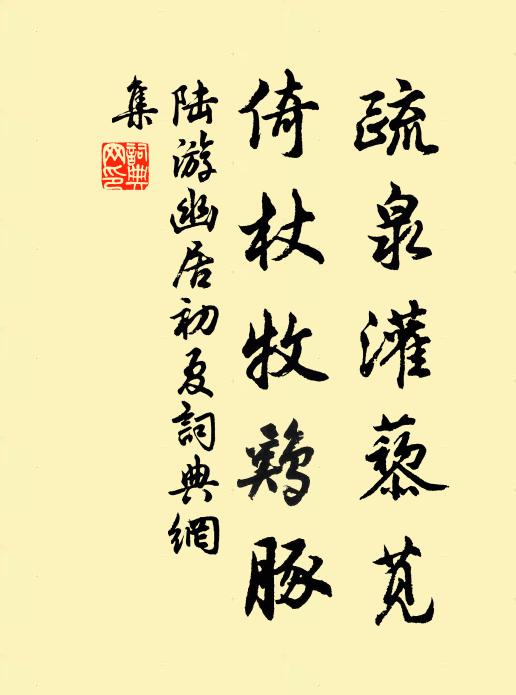 疏泉灌藜莧
倚杖牧鷄豚
陆游幽居初夏詞典網
集
詞典網印